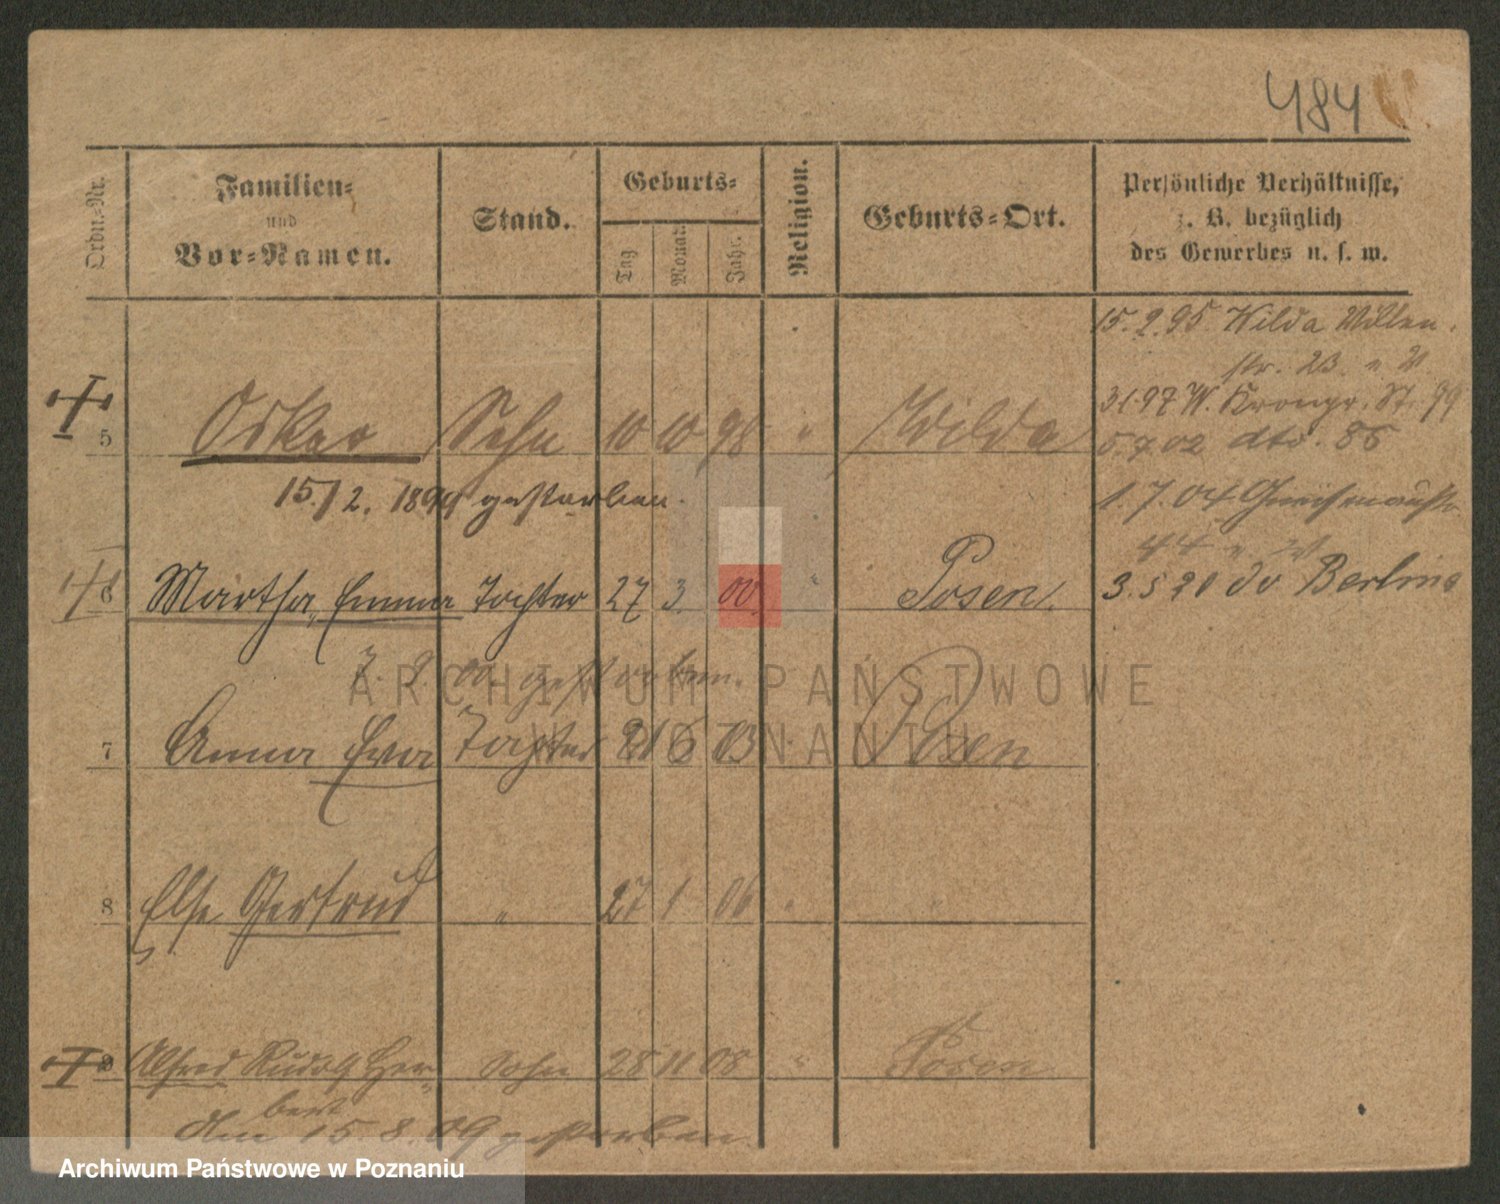 484
Ordn.-Nr.
Familien-
und
Vor-Namen.
Stand.
Geburts-
Tag
Monat.
Jahr.
Religion.
Geburts-Ort.
Persönliche Verhältnisse,
z. B. bezüglich
des Gewerbes u. s. w.
15.2.95 Wilda
str. 23.
3.1.97 W. Kronpr. St. 99
5.7.02 dto. 85
1.7.04 Gneisenaustr.
44
3.5.20 do Berlin
5 Oskar Sohn 10 10 98 " Wilda
15./2. 1899 gestorben.
6 Martha, Emma Tochter 27 3 00 " Posen.
7. 9. 00. gestorben.
7 Anna Eva Tochter 21 6 03 " Posen
8 Else Gertrud " 27 1 06 " "
9 Alfred Rudolf Her- Sohn 28 11 08 " Posen
bert
Am 15.8.09 gestorben.
ARCHIWUM PAŃSTWOWE
W POZNANIU
Archiwum Państwowe w Poznaniu